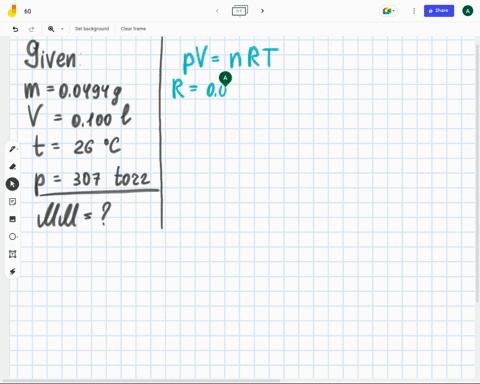 60
Share
A
Set background
Clear frame
Given:
m = 0.0494 g
V = 0.100 l
t = 26 °C
p = 307 torr
MM = ?
pV = nRT
A
R = 0.0